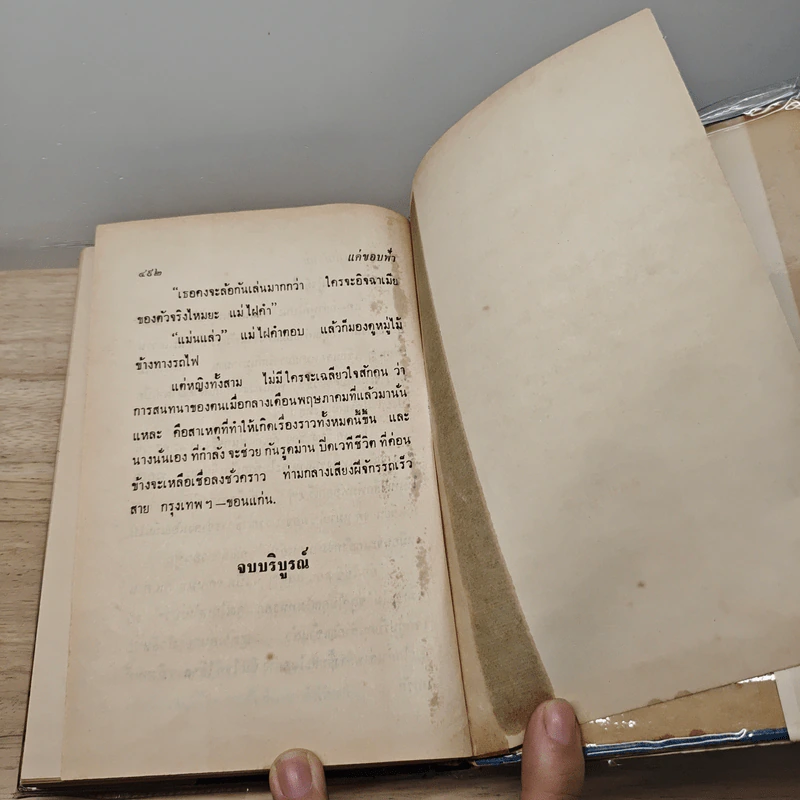 ๔๙๒
แค่ขอบฟ้า
“เธอคงจะล้อกันเล่นมากกว่า ใครจะอิจฉาเมีย
ของตัวจริงไหมยะ แม่ไฝคำ”
“แม่นแล่ว” แม่ไฝคำตอบ แล้วก็มองดูหมู่ไม้
ข้างทางรถไฟ
แต่หญิงทั้งสาม ไม่มีใครจะเฉลียวใจสักคน ว่า
การสนทนาของตนเมื่อกลางเดือนพฤษภาคมที่แล้วมานั่น
แหละ คือสาเหตุที่ทำให้เกิดเรื่องราวทั้งหมดนี้ขึ้น และ
นางนั่นเอง ที่กำลัง จะช่วย กันรูดม่าน ปิดเวทีชีวิต ที่ค่อน
ข้างจะเหลือเชื่อลงชั่วคราว ท่ามกลางเสียงผีจักรรถเร็ว
สาย กรุงเทพ ฯ—ขอนแก่น.
จบบริบูรณ์